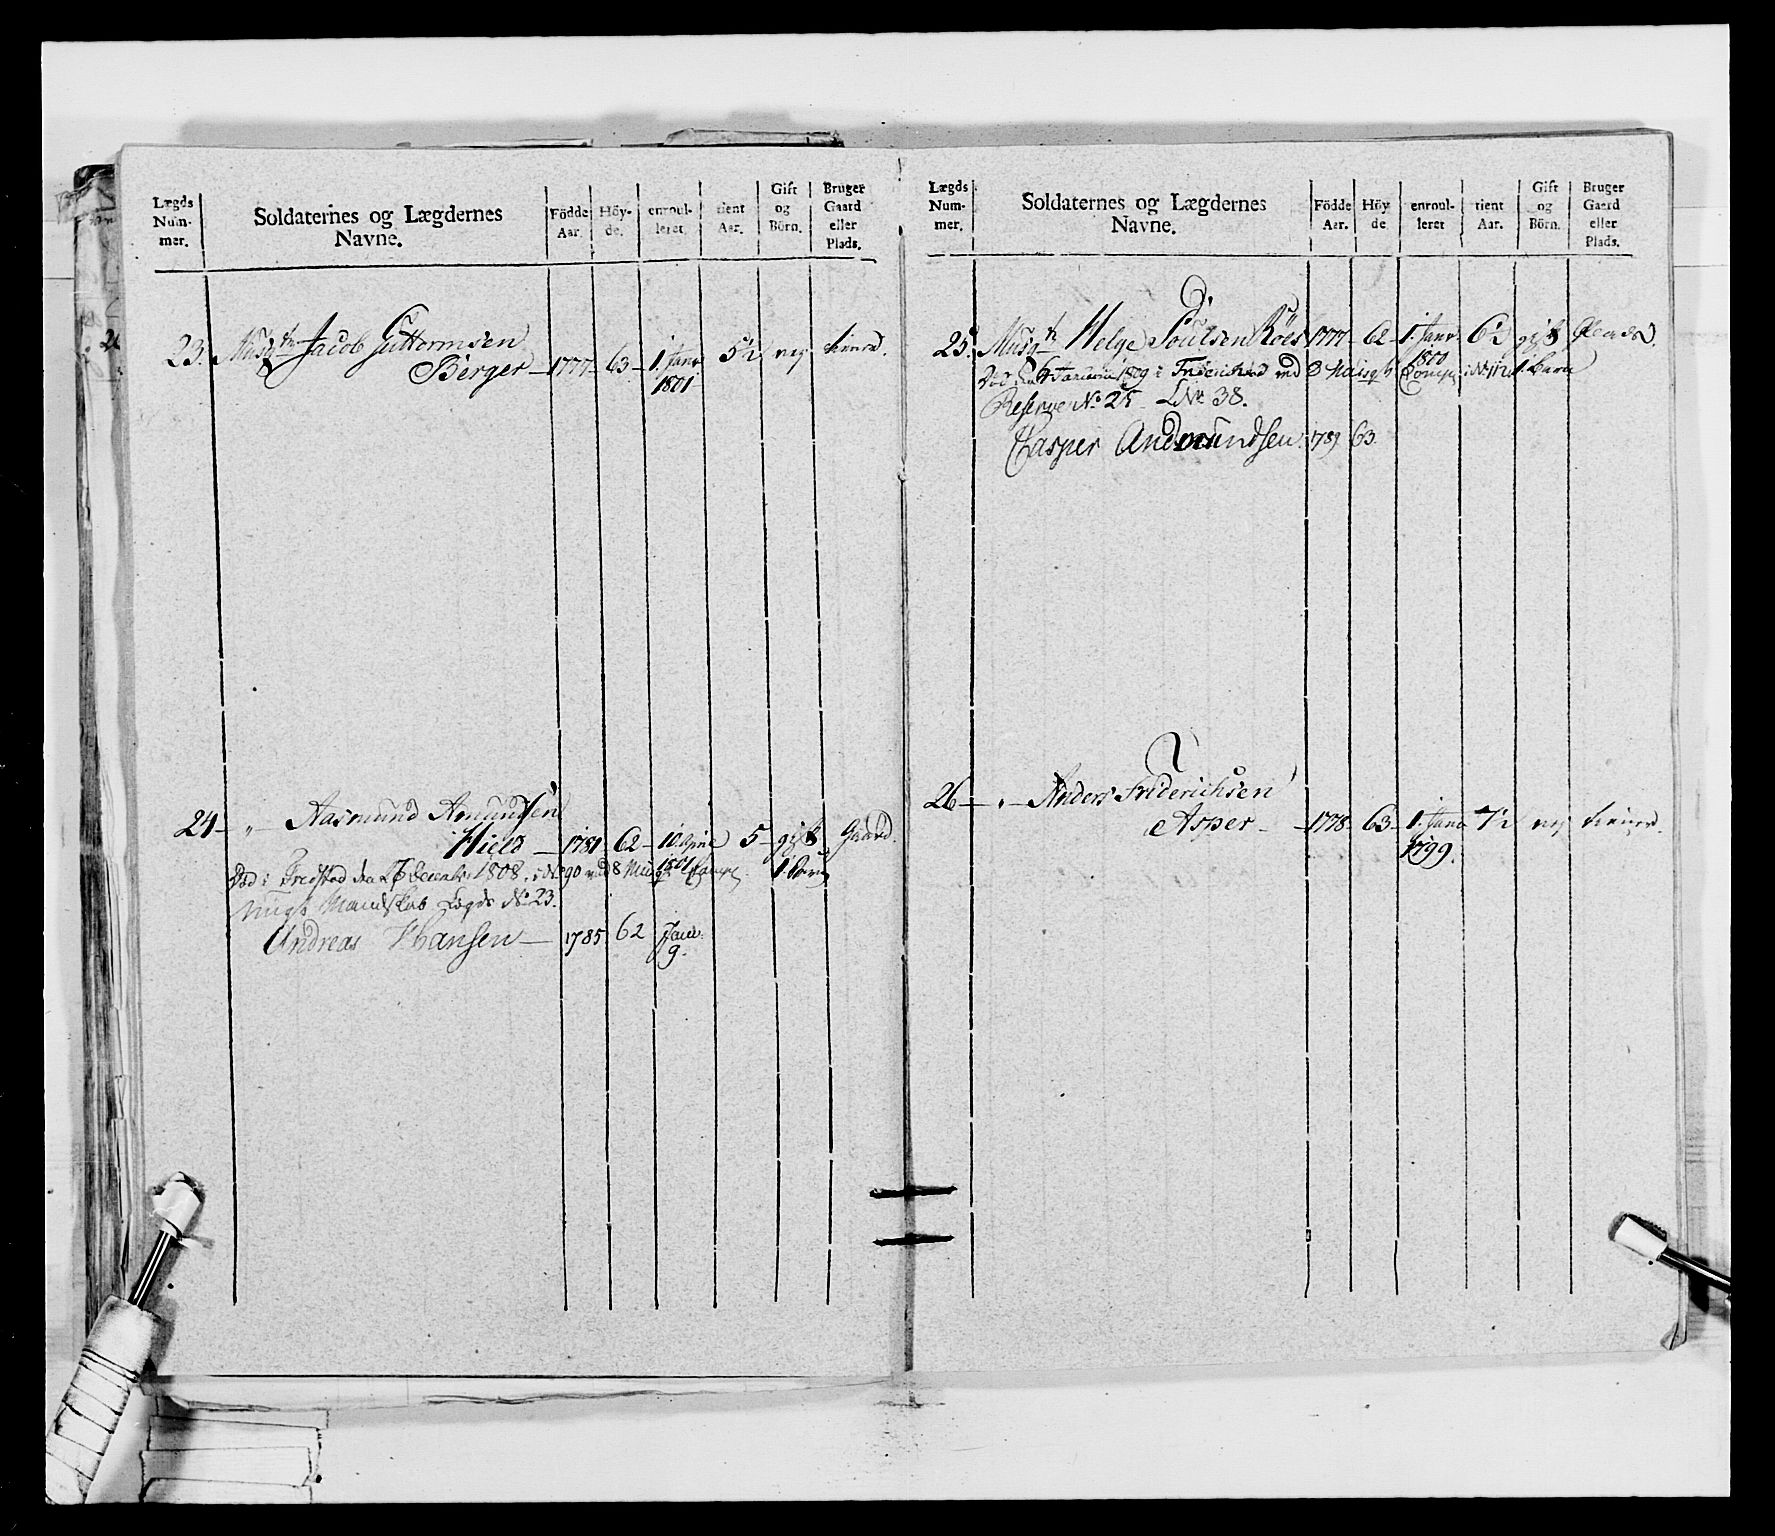 Lægds Num- mer.
Soldaternes og Lægdernes Navne.
Födde Aar.
Höy- de.
enroul- leret
tient Aar.
Gift og Börn.
Bruger Gaard eller Plads.
23. Musqtr Jacob Guttormsen
Berger – 1777 – 63 – 1. Janr 5½ nej
1801
24 – " – Aasmund Amundsen
Hield – 1781 62 – 10 April 5 – gift Gaard.
1801 1. Barn
Död i Fredstad den 26 December 1808. i No 90 ved 8 Musq Comp.
Mandskab Lægds No 23.
Andreas Hansen – 1785 62 Janr.
9.
Lægds Num- mer.
Soldaternes og Lægdernes Navne.
Födde Aar.
Höy de
enroul- leret
tient Aar.
Gift og Börn.
Bruger Gaard eller Plads.
25. Musqtr Helge Poulsen Röes 1777 – 62 – 1. Janr 6½ gift
1800 1 Barn
Död Januarii 1809 i Friderichstad ved Comp
Reserve No 25 LNo 38.
Casper Andmundsen. 1789 63.
26 – " – Anders Friderichsen
Asper – 1778 – 63 – 1. Janr 7½ nej
1799.